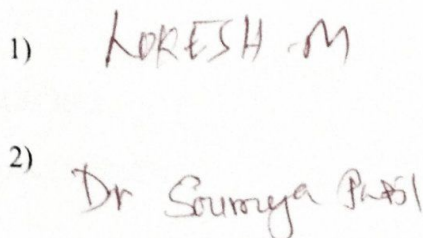 1) LOKESH .M
2) Dr Soumya Patil